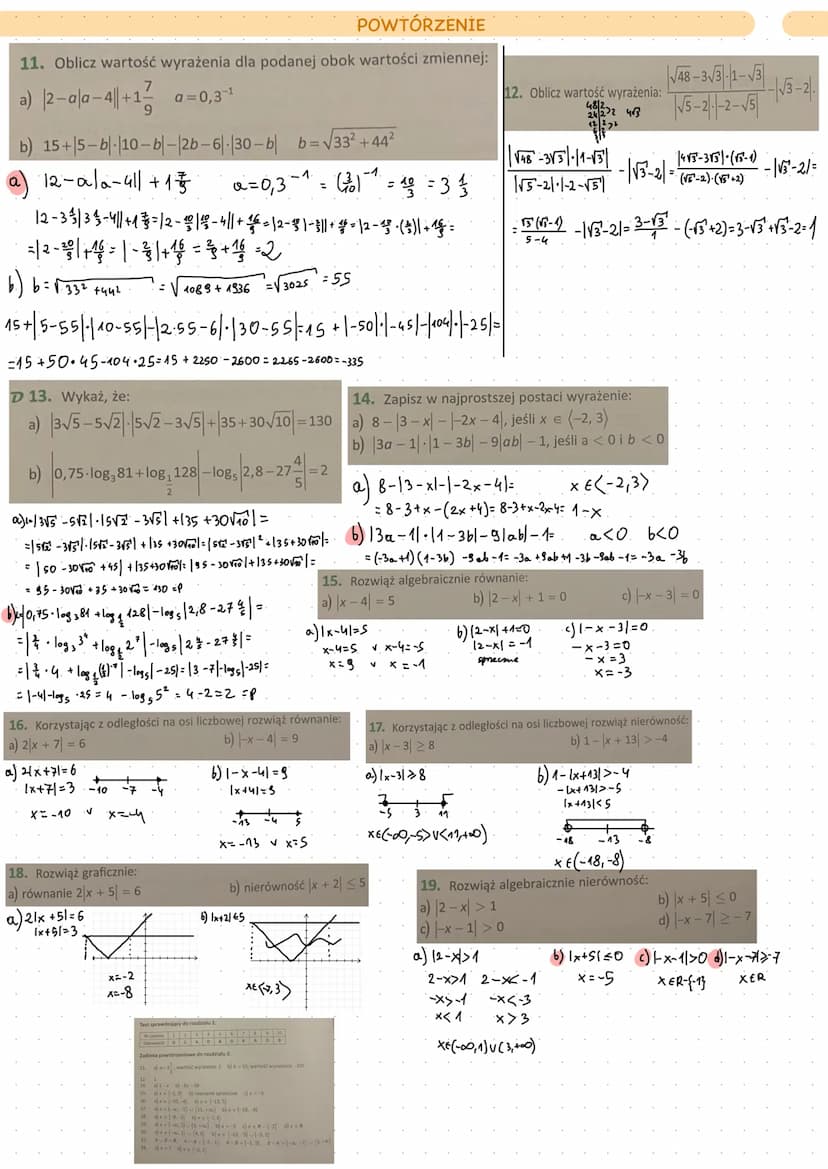 POWTÓRZENIE
11. Oblicz wartość wyrażenia dla podanej obok wartości zmiennej:
a) |2−a|a−4||+1 7/9   a=0,3⁻¹
b) 15+|5−b|·|10−b|−|2b−6|·|30−b|   b=√(33²+44²)
a) |2−a|a−4||+1 7/9   a=0,3⁻¹ = (3/10)⁻¹ = 10/3 = 3 1/3
=|2−20/9|+16/9 = |−2/9|+16/9 = 2/9+16/9 = 2
b) b=√(33²+44²) = √(1089+1936) = √3025 = 55
15+|5−55|·|10−55|−|2·55−6|·|30−55|=15+|−50|·|−45|−|104|·|−25|=
=15+50·45−104·25=15+2250−2600=2265−2600=−335
12. Oblicz wartość wyrażenia: |√48−3√3|·|1−√3| / |√5−2|·|−2−√5| −|√3−2|.
|√48−3√3|·|1−√3| / |√5−2|·|−2−√5| −|√3−2|= |4√3−3√3|·(√3−1) / (√5−2)·(√5+2) −|√3−2|=
= √3(√3−1) / 5−4 −|√3−2|= 3−√3 / 1 −(−√3+2)=3−√3+√3−2=1
D 13. Wykaż, że:
a) |3√5−5√2|·|5√2−3√5|+|35+30√10|=130
b) |0,75·log₃81+log_(1/2)128|−log₅|2,8−27 4/5|=2
a) L=|3√5−5√2|·|5√2−3√5|+|35+30√10|=
=|5√2−3√5|·|5√2−3√5|+|35+30√10|=|5√2−3√5|²+|35+30√10|=
=|50−30√10+45|+|35+30√10|=|95−30√10|+|35+30√10|=
=95−30√10+35+30√10=130=P
b) L=|0,75·log₃81+log_(1/2)128|−log₅|2,8−27 4/5|=
=|3/4·log₃3⁴+log_(1/2)2⁷|−log₅|2 4/5−27 4/5|=
=|3/4·4+log_(1/2)(1/2)⁻⁷|−log₅|−25|=|3−7|−log₅|−25|=
=|−4|−log₅·25=4−log₅5²=4−2=2=P
14. Zapisz w najprostszej postaci wyrażenie:
a) 8−|3−x|−|−2x−4|, jeśli x ∈ ⟨−2, 3⟩
b) |3a−1|·|1−3b|−9|ab|−1, jeśli a < 0 i b < 0
a) 8−|3−x|−|−2x−4|=   x∈⟨−2,3⟩
=8−3+x−(2x+4)=8−3+x−2x−4=1−x
b) |3a−1|·|1−3b|−9|ab|−1=   a<0   b<0
=(−3a+1)(1−3b)−9ab−1=−3a+9ab+1−3b−9ab−1=−3a−3b
15. Rozwiąż algebraicznie równanie:
a) |x−4|=5   b) |2−x|+1=0   c) |−x−3|=0
a) |x−4|=5   b) |2−x|+1=0   c) |−x−3|=0
x−4=5 v x−4=−5   |2−x|=−1   −x−3=0
x=9 v x=−1   sprzeczne   −x=3
x=−3
16. Korzystając z odległości na osi liczbowej rozwiąż równanie:
a) 2|x+7|=6   b) |−x−4|=9
a) 2|x+7|=6   b) |−x−4|=9
|x+7|=3   −10 −7 −4   |x+4|=9
−13 −4 5
x=−10 v x=−4   x=−13 v x=5
17. Korzystając z odległości na osi liczbowej rozwiąż nierówność:
a) |x−3|≥8   b) 1−|x+13|>−4
a) |x−3|≥8   b) 1−|x+13|>−4
−|x+13|>−5
|x+13|<5
−5 3 11   −18 −13 −8
x∈(−∞,−5⟩∪⟨11,+∞)   x∈(−18,−8)
18. Rozwiąż graficznie:
a) równanie 2|x+5|=6   b) nierówność |x+2|≤5
a) 2|x+5|=6   b) |x+2|≤5
|x+5|=3
x=−2
x=−8
19. Rozwiąż algebraicznie nierówność:
a) |2−x|>1   b) |x+5|≤0
c) |−x−1|>0   d) |−x−7|≥−7
a) |2−x|>1   b) |x+5|≤0   c) |−x−1|>0   d) |−x−7|≥−7
2−x>1   2−x<−1   x=−5   x∈R−{−1}   x∈R
−x>−1   −x<−3
x<1   x>3
x∈(−∞,1)∪(3,+∞)
Test sprawdzający do rozdziału 1.
Zadania powtórzeniowe do rozdziału 2.